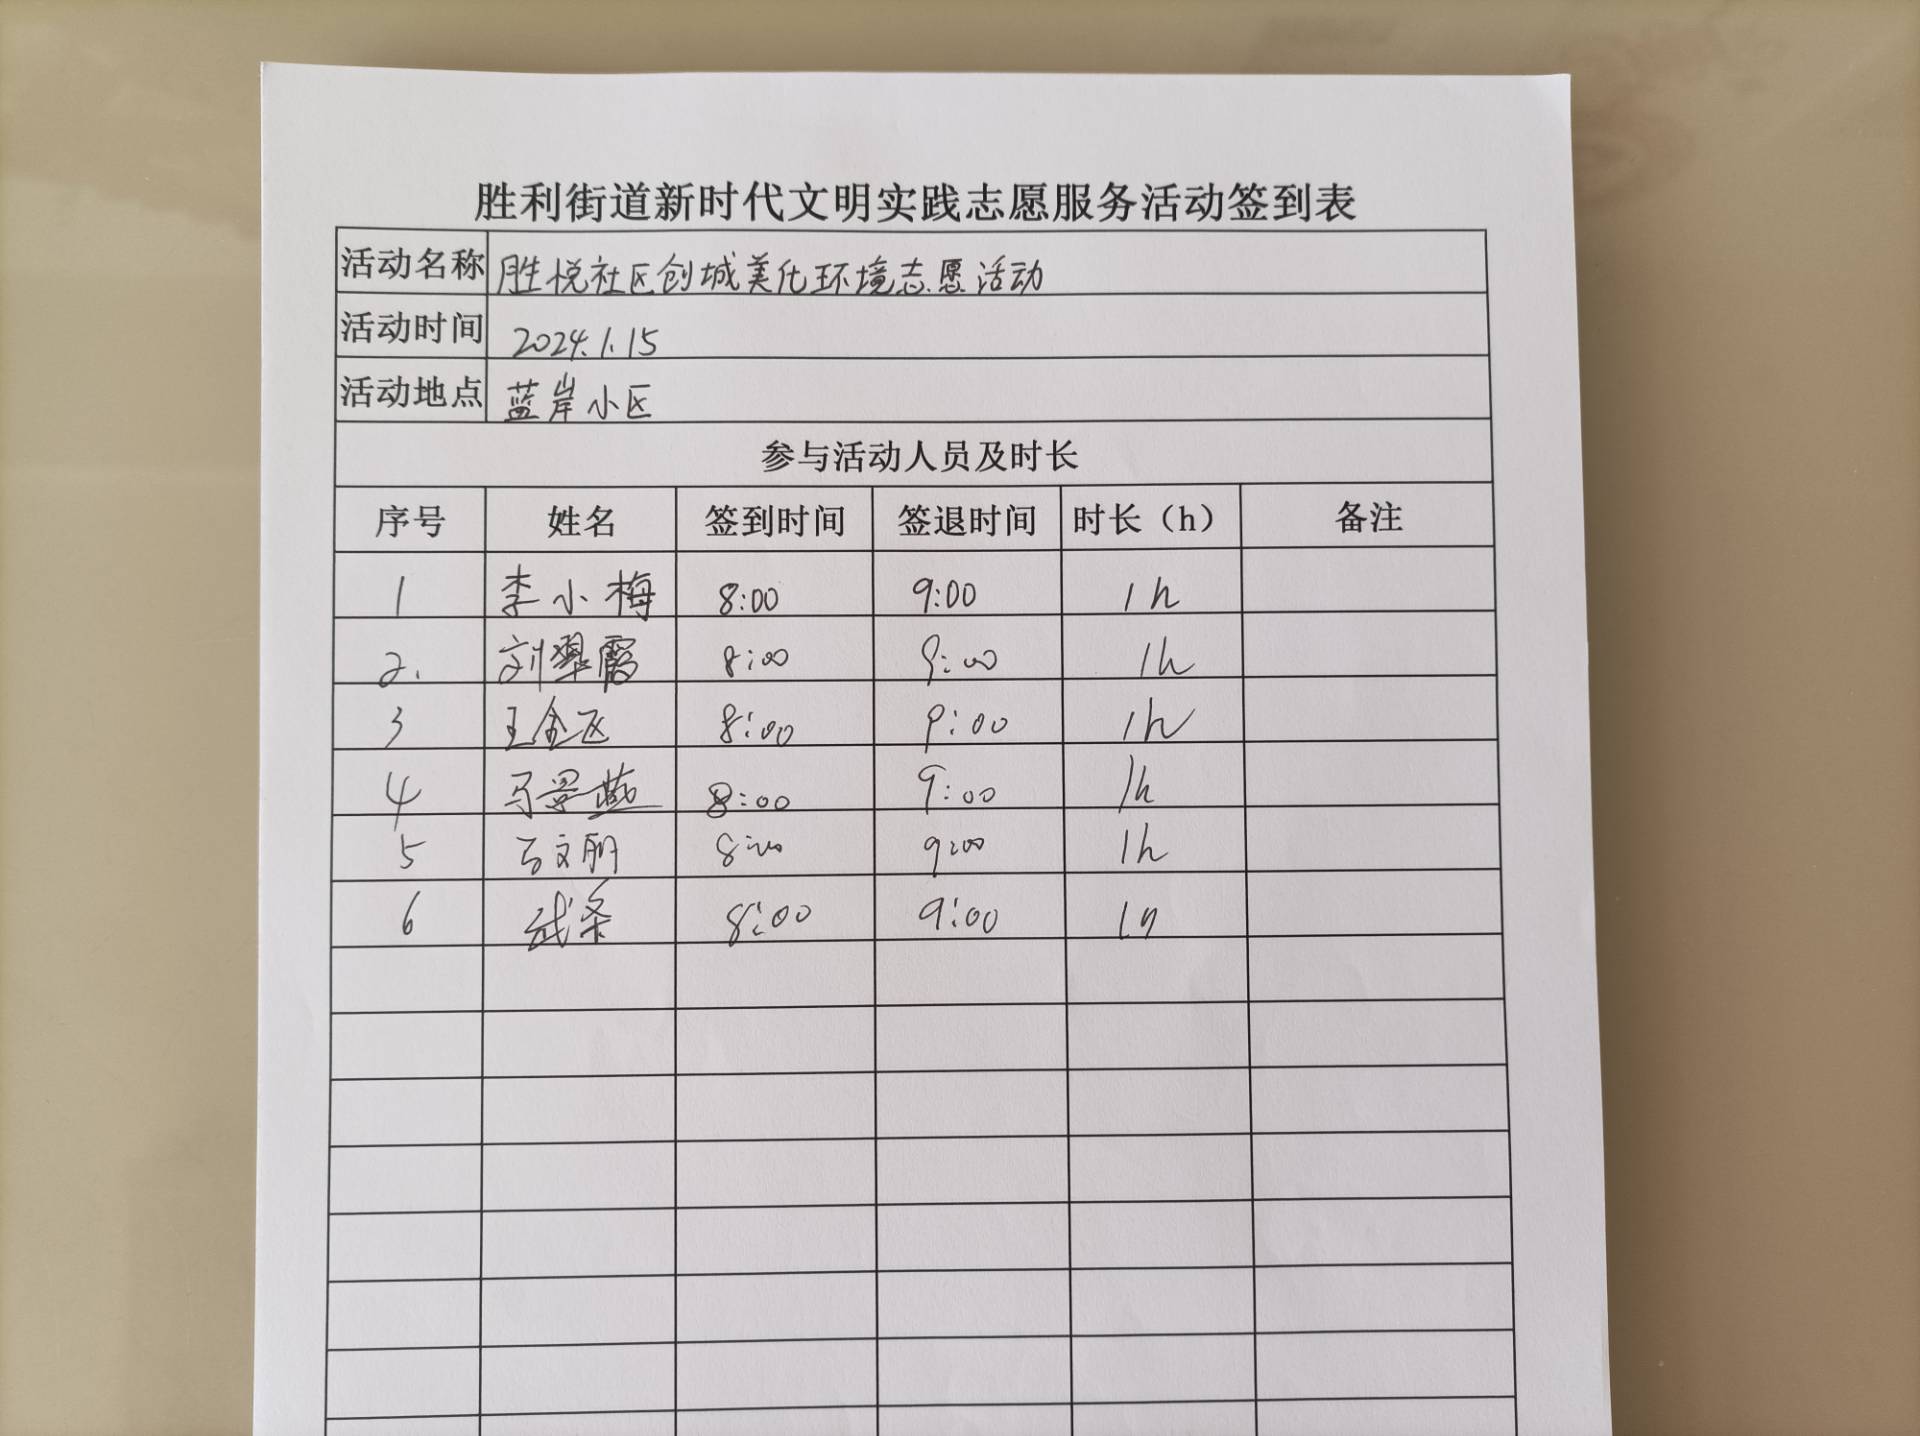 胜利街道新时代文明实践志愿服务活动签到表
活动名称 胜悦社区创城美化环境志愿活动
活动时间 2024.1.15
活动地点 蓝岸小区
参与活动人员及时长
序号 姓名 签到时间 签退时间 时长（h） 备注
1 李小梅 8:00 9:00 1h
2. 刘翠霞 8:00 9:00 1h
3 王金 8:00 9:00 1h
4 马景燕 8:00 9:00 1h
5 文丽 8:00 9:00 1h
6 武 8:00 9:00 1h